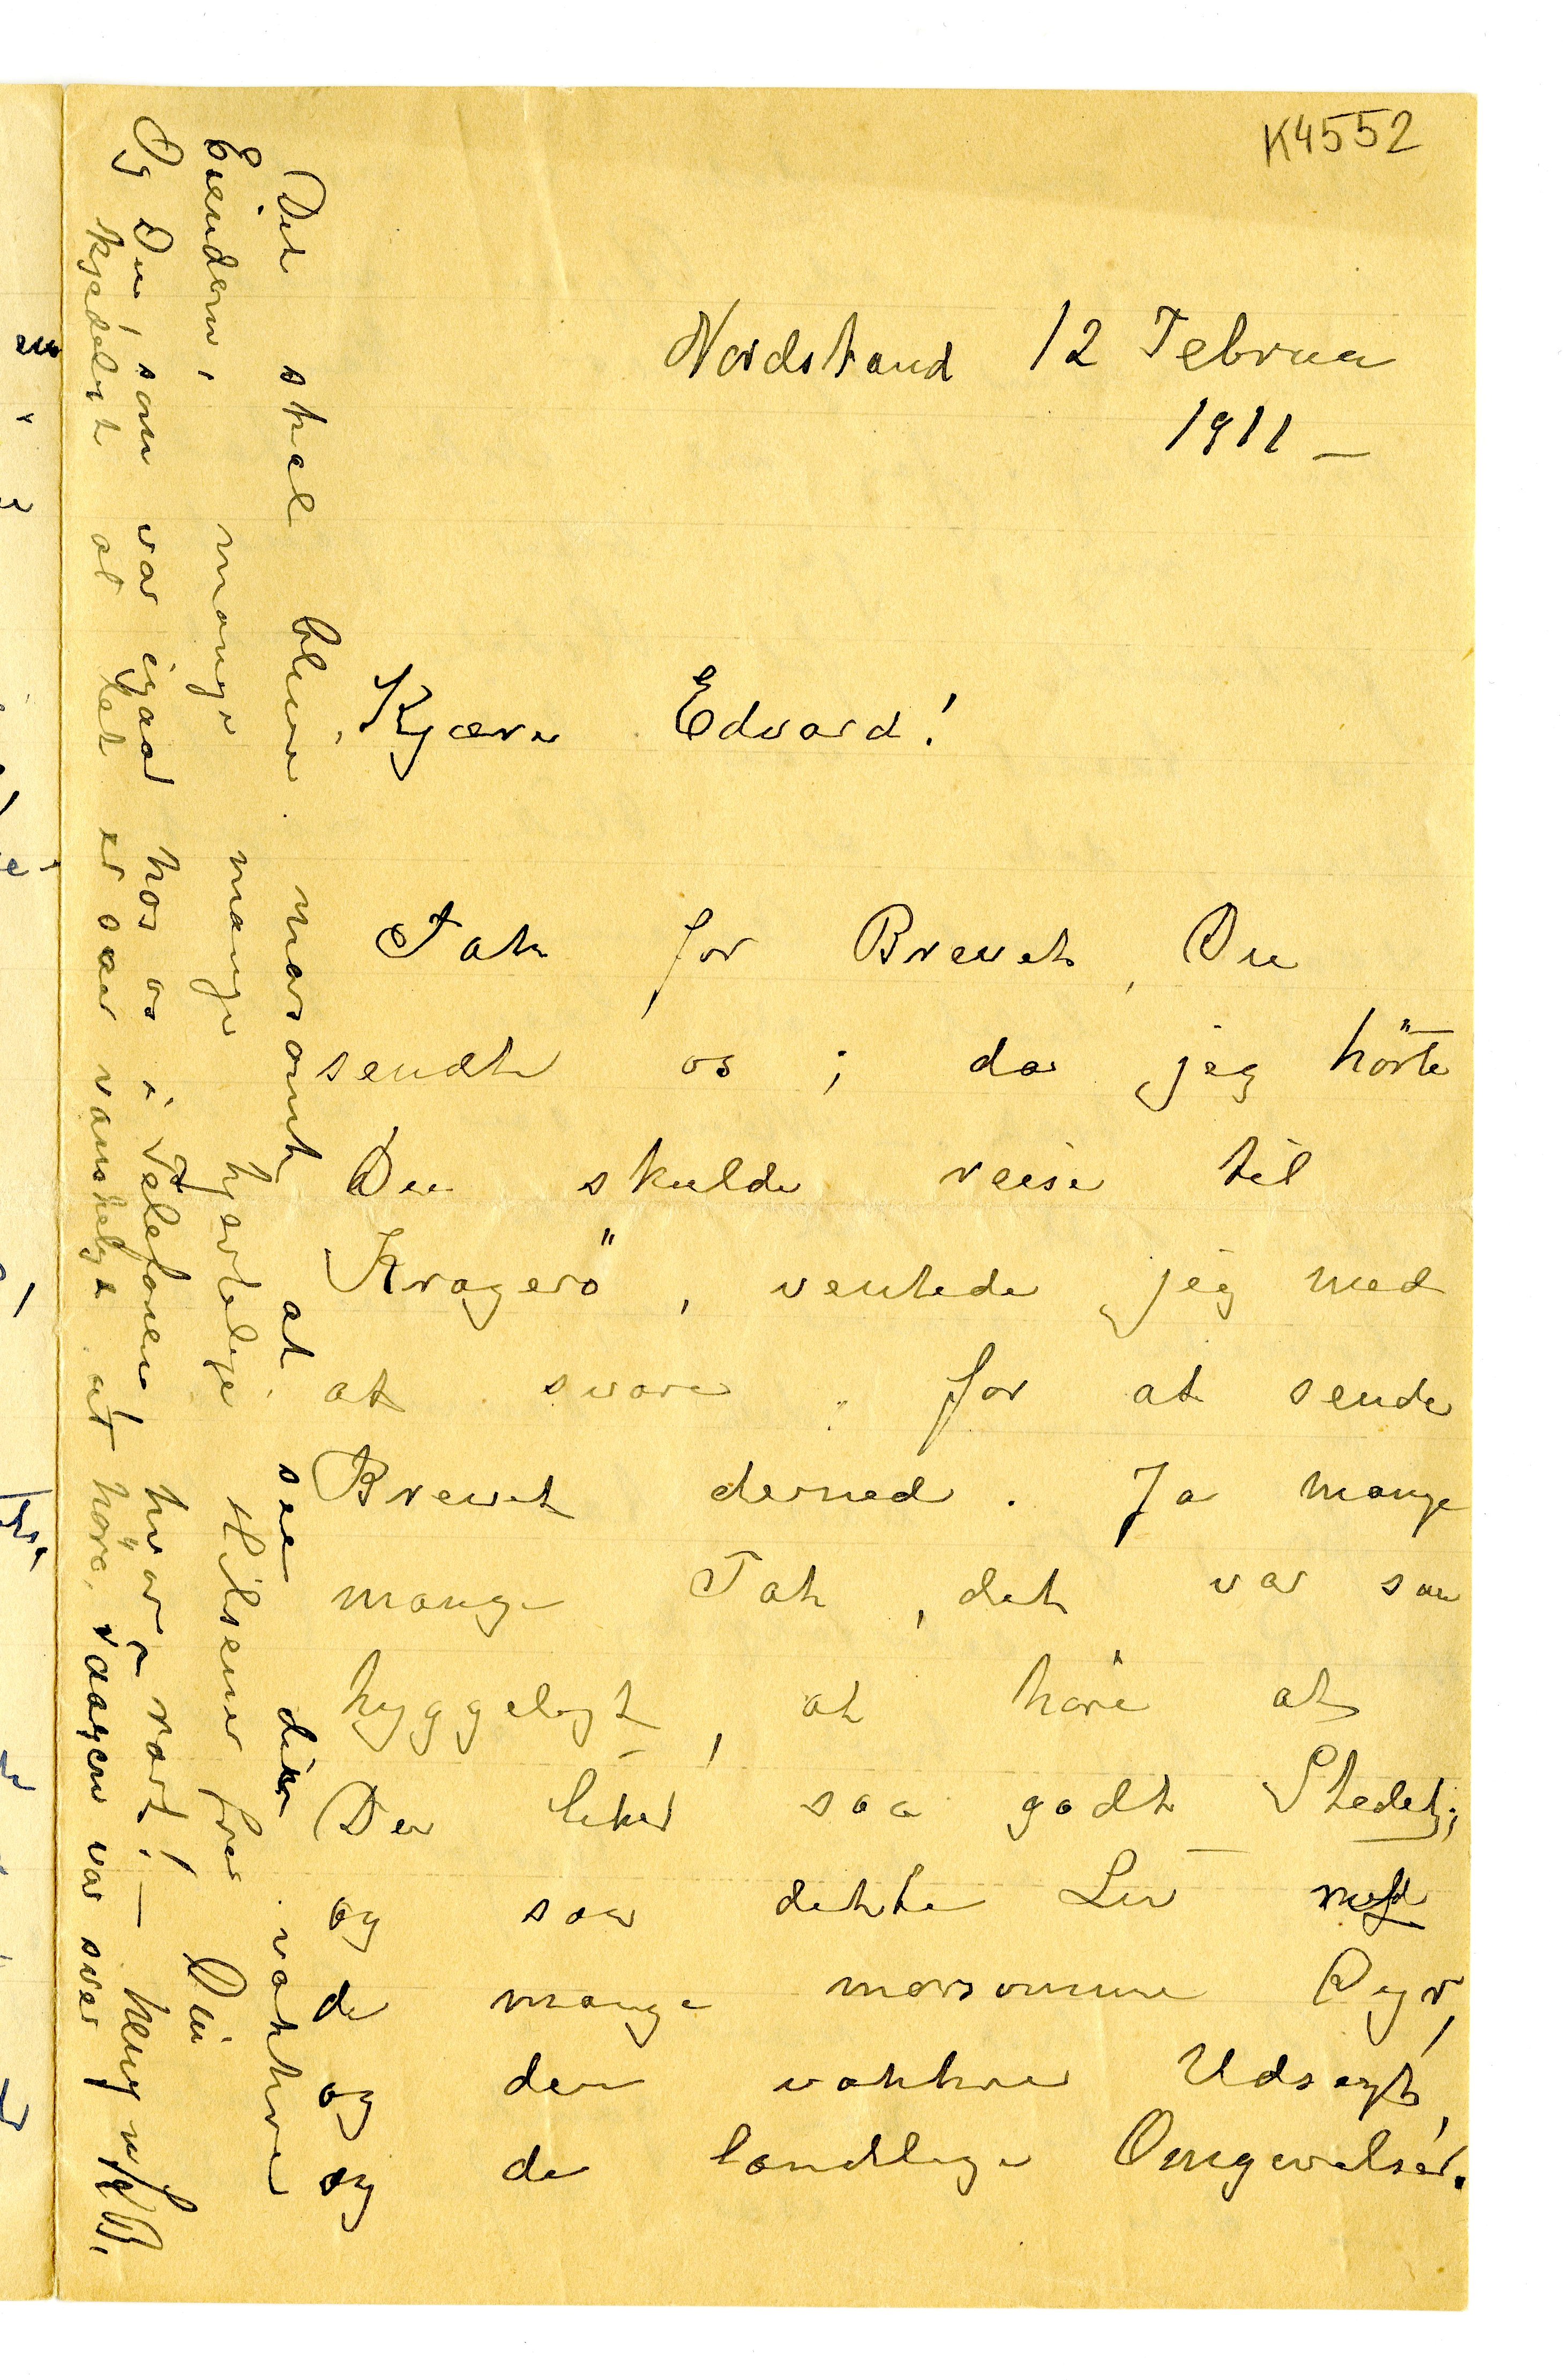 K4552
Nordstrand 12 Februar
1911 –
Kjære Edvard!
Tak for Brevet, Du
sendte os; da jeg hörte
Du skulde reise til
Kragerö, ventede jeg med
at svare for at sende
Brevet derned. Ja mange
mange Tak, det var saa
hyggeligt, at höre at
Du liker saa godt Stedet;
og saa dette Liv med
de mange morsomme Dyr,
og den vakkre Udsigt,
og de landlige Omgivelser.
Det skal blive morsomt at see din vakkre
Eiendom, mange mange hjertelige Hilsener fra Din
Og Du, som var igaar hos os i Telefonen! hvor rart! –
kjedeligt at det er saa vanskeligt at höre, var svær